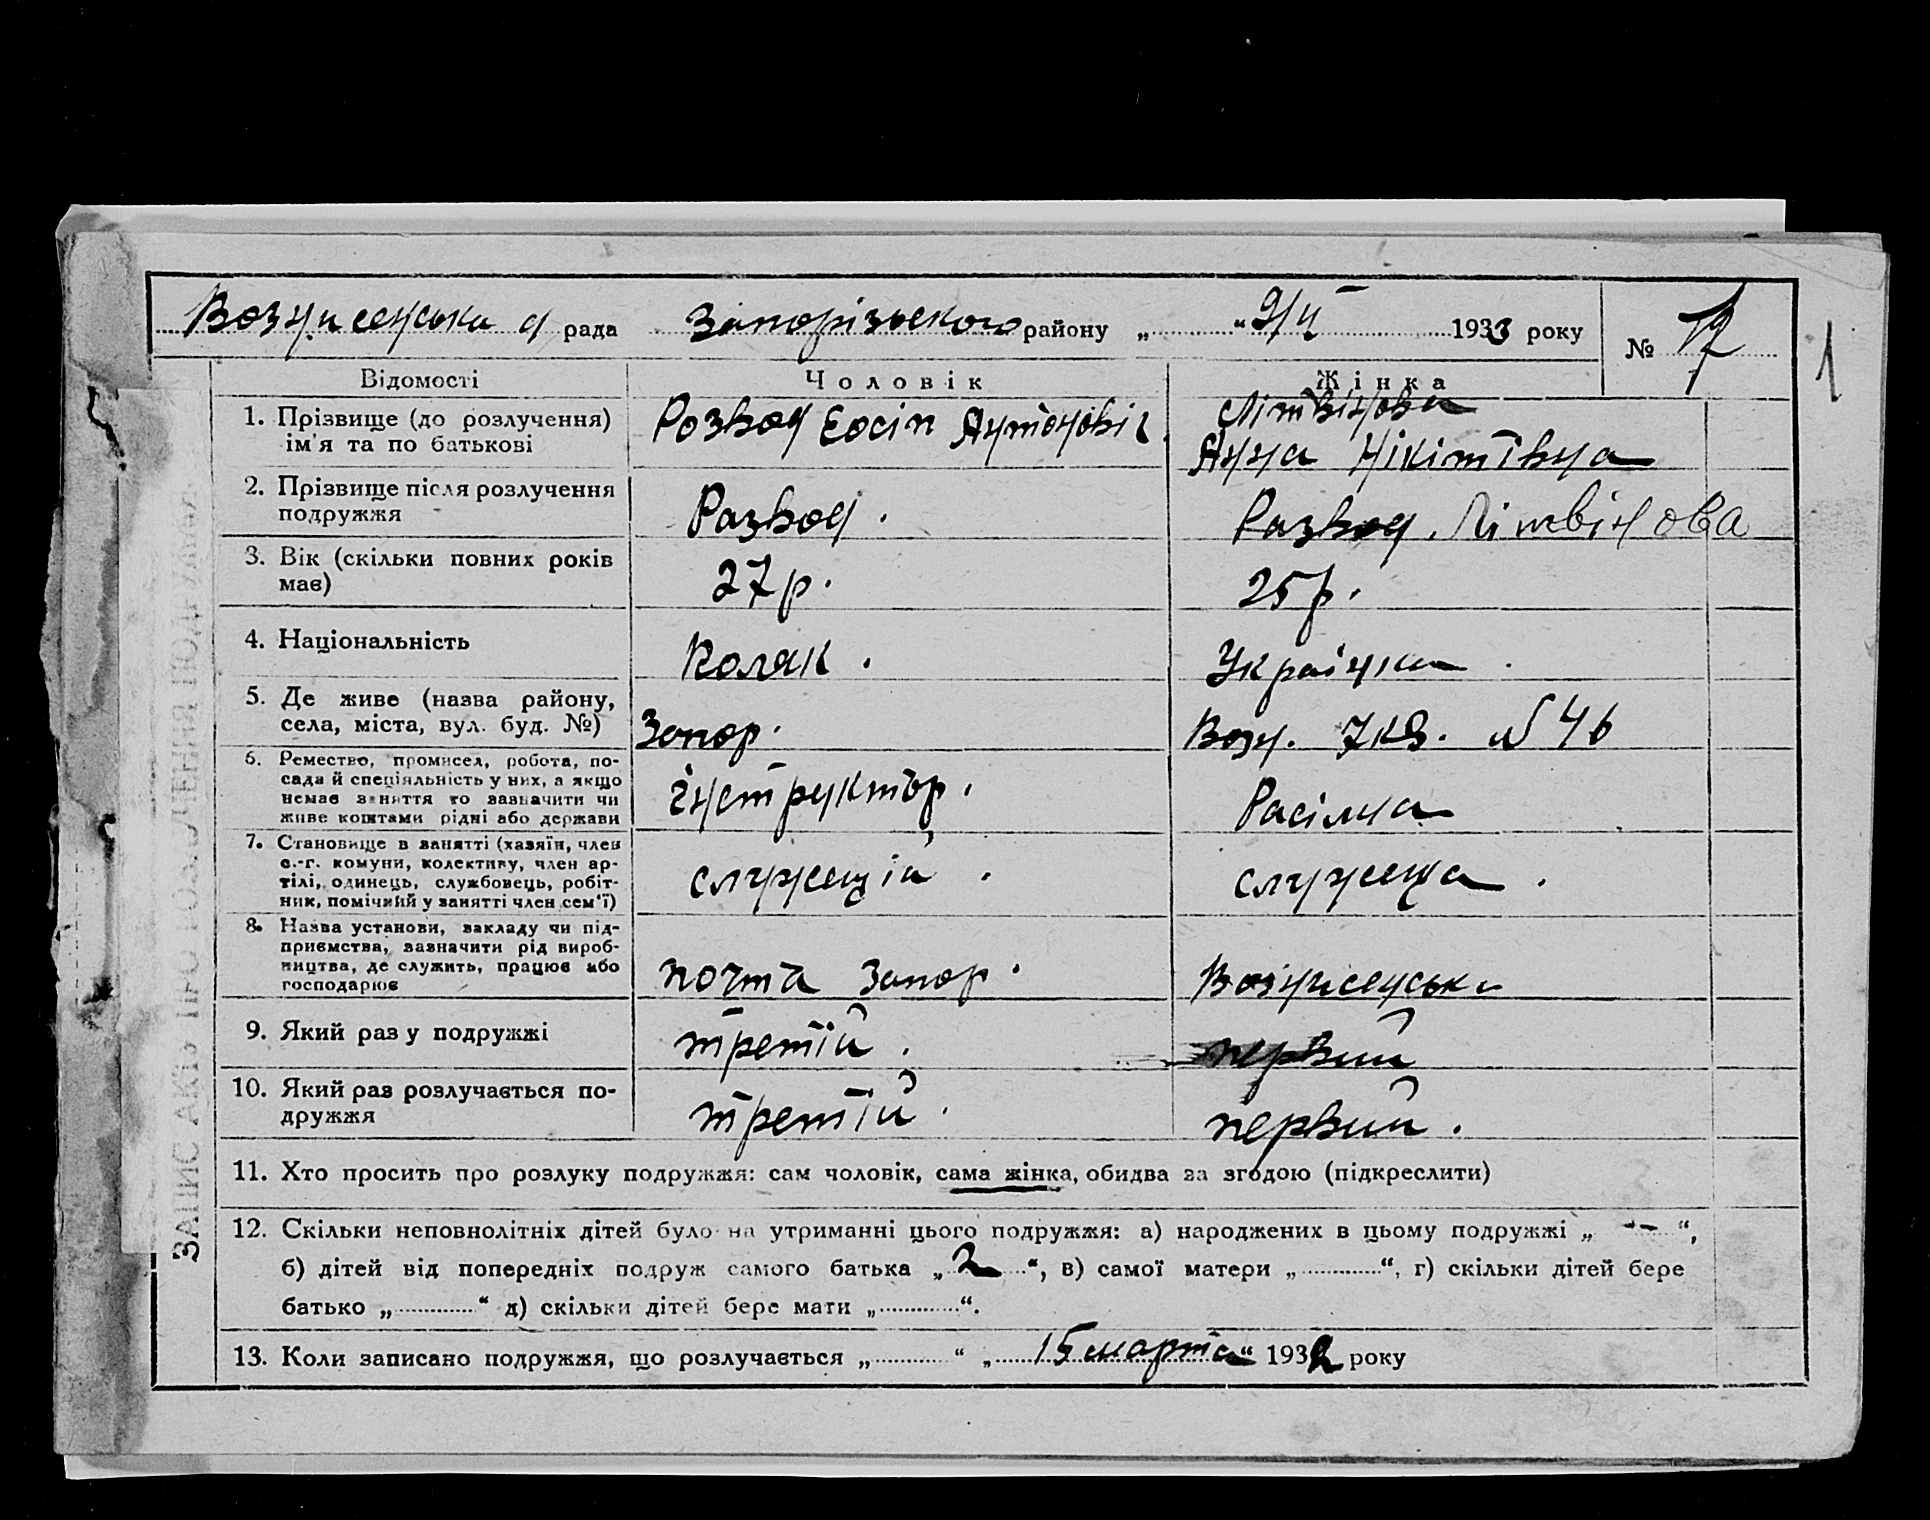 Вознисенська с/ рада Запорізького району „ “ 9/II 1933 року № 17
1
Відомості Чоловік Жінка
1. Прізвище (до розлучення) ім'я та по батькові
Розвод Еосіп Антоновіч
Літвінова
Анна Нікітівна
2. Прізвище після розлучення подружжя
Развод.
Развод. Літвінова
3. Вік (скільки повних років має)
27 р.
25 р.
4. Національність
Поляк.
Українка.
5. Де живе (назва району, села, міста, вул. буд. №)
Запор.
Возн. 7 кв. N 46
6. Ремество, промисел, робота, посада й спеціяльність у них, а якщо немає заняття то зазначити чи живе коштами рідні або держави
інструктор.
7. Становище в занятті (хазяїн, член с.-г. комуни, колективу, член артілі, одинець, службовець, робітник, помічний у занятті член сем'ї)
служещій.
служеща.
8. Назва установи, закладу чи підприємства, зазначити рід виробництва, де служить, працює або господарює
почта Запор.
Вознисенська
9. Який раз у подружжі
третій.
первий
10. Який раз розлучається подружжя
третій.
первий.
11. Хто просить про розлуку подружжя: сам чоловік, сама жінка, обидва за згодою (підкреслити)
12. Скільки неповнолітніх дітей було на утриманні цього подружжя: а) народжених в цьому подружжі „ — “,
б) дітей від попередніх подруж самого батька „ 2 “, в) самої матери „ “, г) скільки дітей бере
батько „ “ д) скільки дітей бере мати „ “.
13. Коли записано подружжя, що розлучається „ “ „ 15 марта “ 1932 року